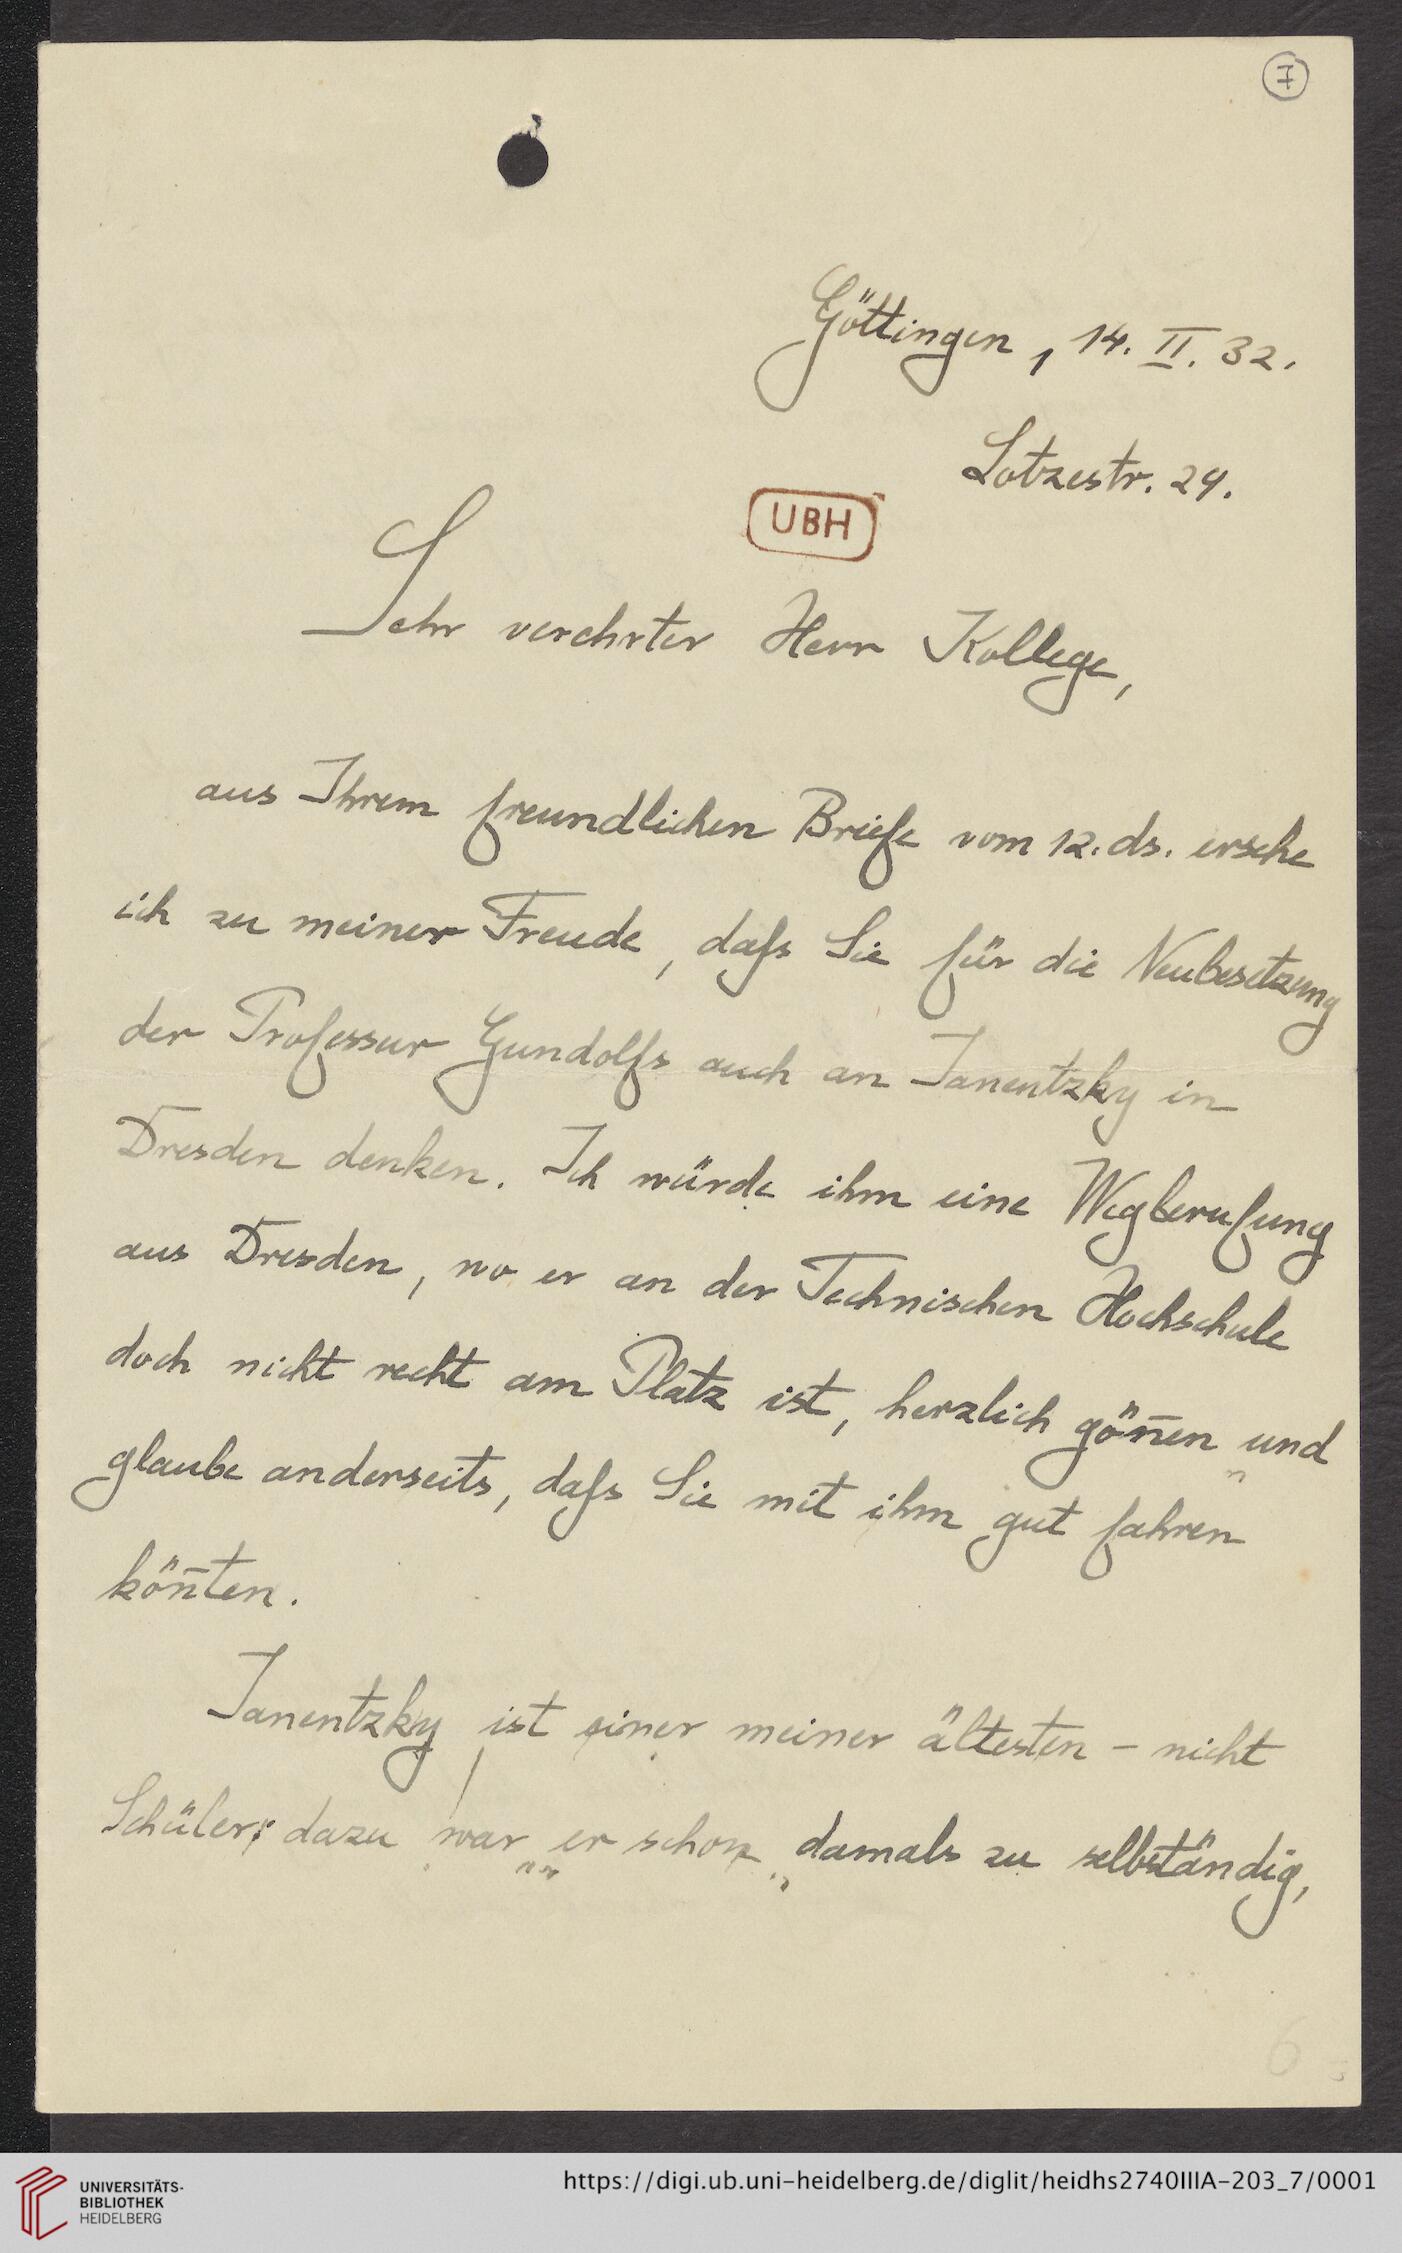 7
Göttingen, 14. II. 32.
Lotzestr. 24.
UBH
Sehr verehrter Herr Kollege,
aus Ihrem freundlichen Briefe vom 12. ds. ersehe
ich zu meiner Freude, dafs Sie für die Neubesetzung
der Professur Gundolfs auch an Janentzky in
Dresden denken. Ich würde ihm eine Wegberufung
aus Dresden, wo er an der Technischen Hochschule
doch nicht recht am Platz ist, herzlich gön̄en und
glaube anderseits, dafs Sie mit ihm gut fahren
kön̄ten.
Janentzky ist einer meiner ältesten – nicht
Schüler; dazu war er schon damals zu selbständig,
UNIVERSITÄTS-
BIBLIOTHEK
HEIDELBERG
https://digi.ub.uni-heidelberg.de/diglit/heidhs2740IIIA-203_7/0001